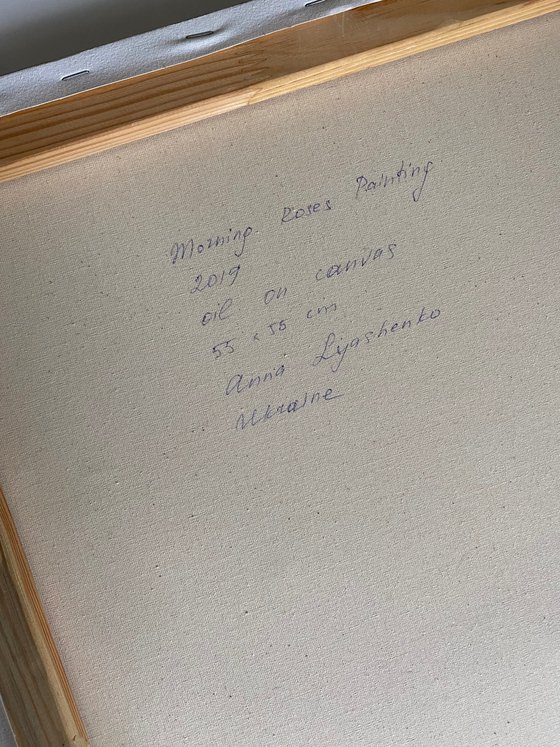 Morning Roses Painting
2019
oil on canvas
55 x 55 cm
Anna Liyashenko
Ukraine